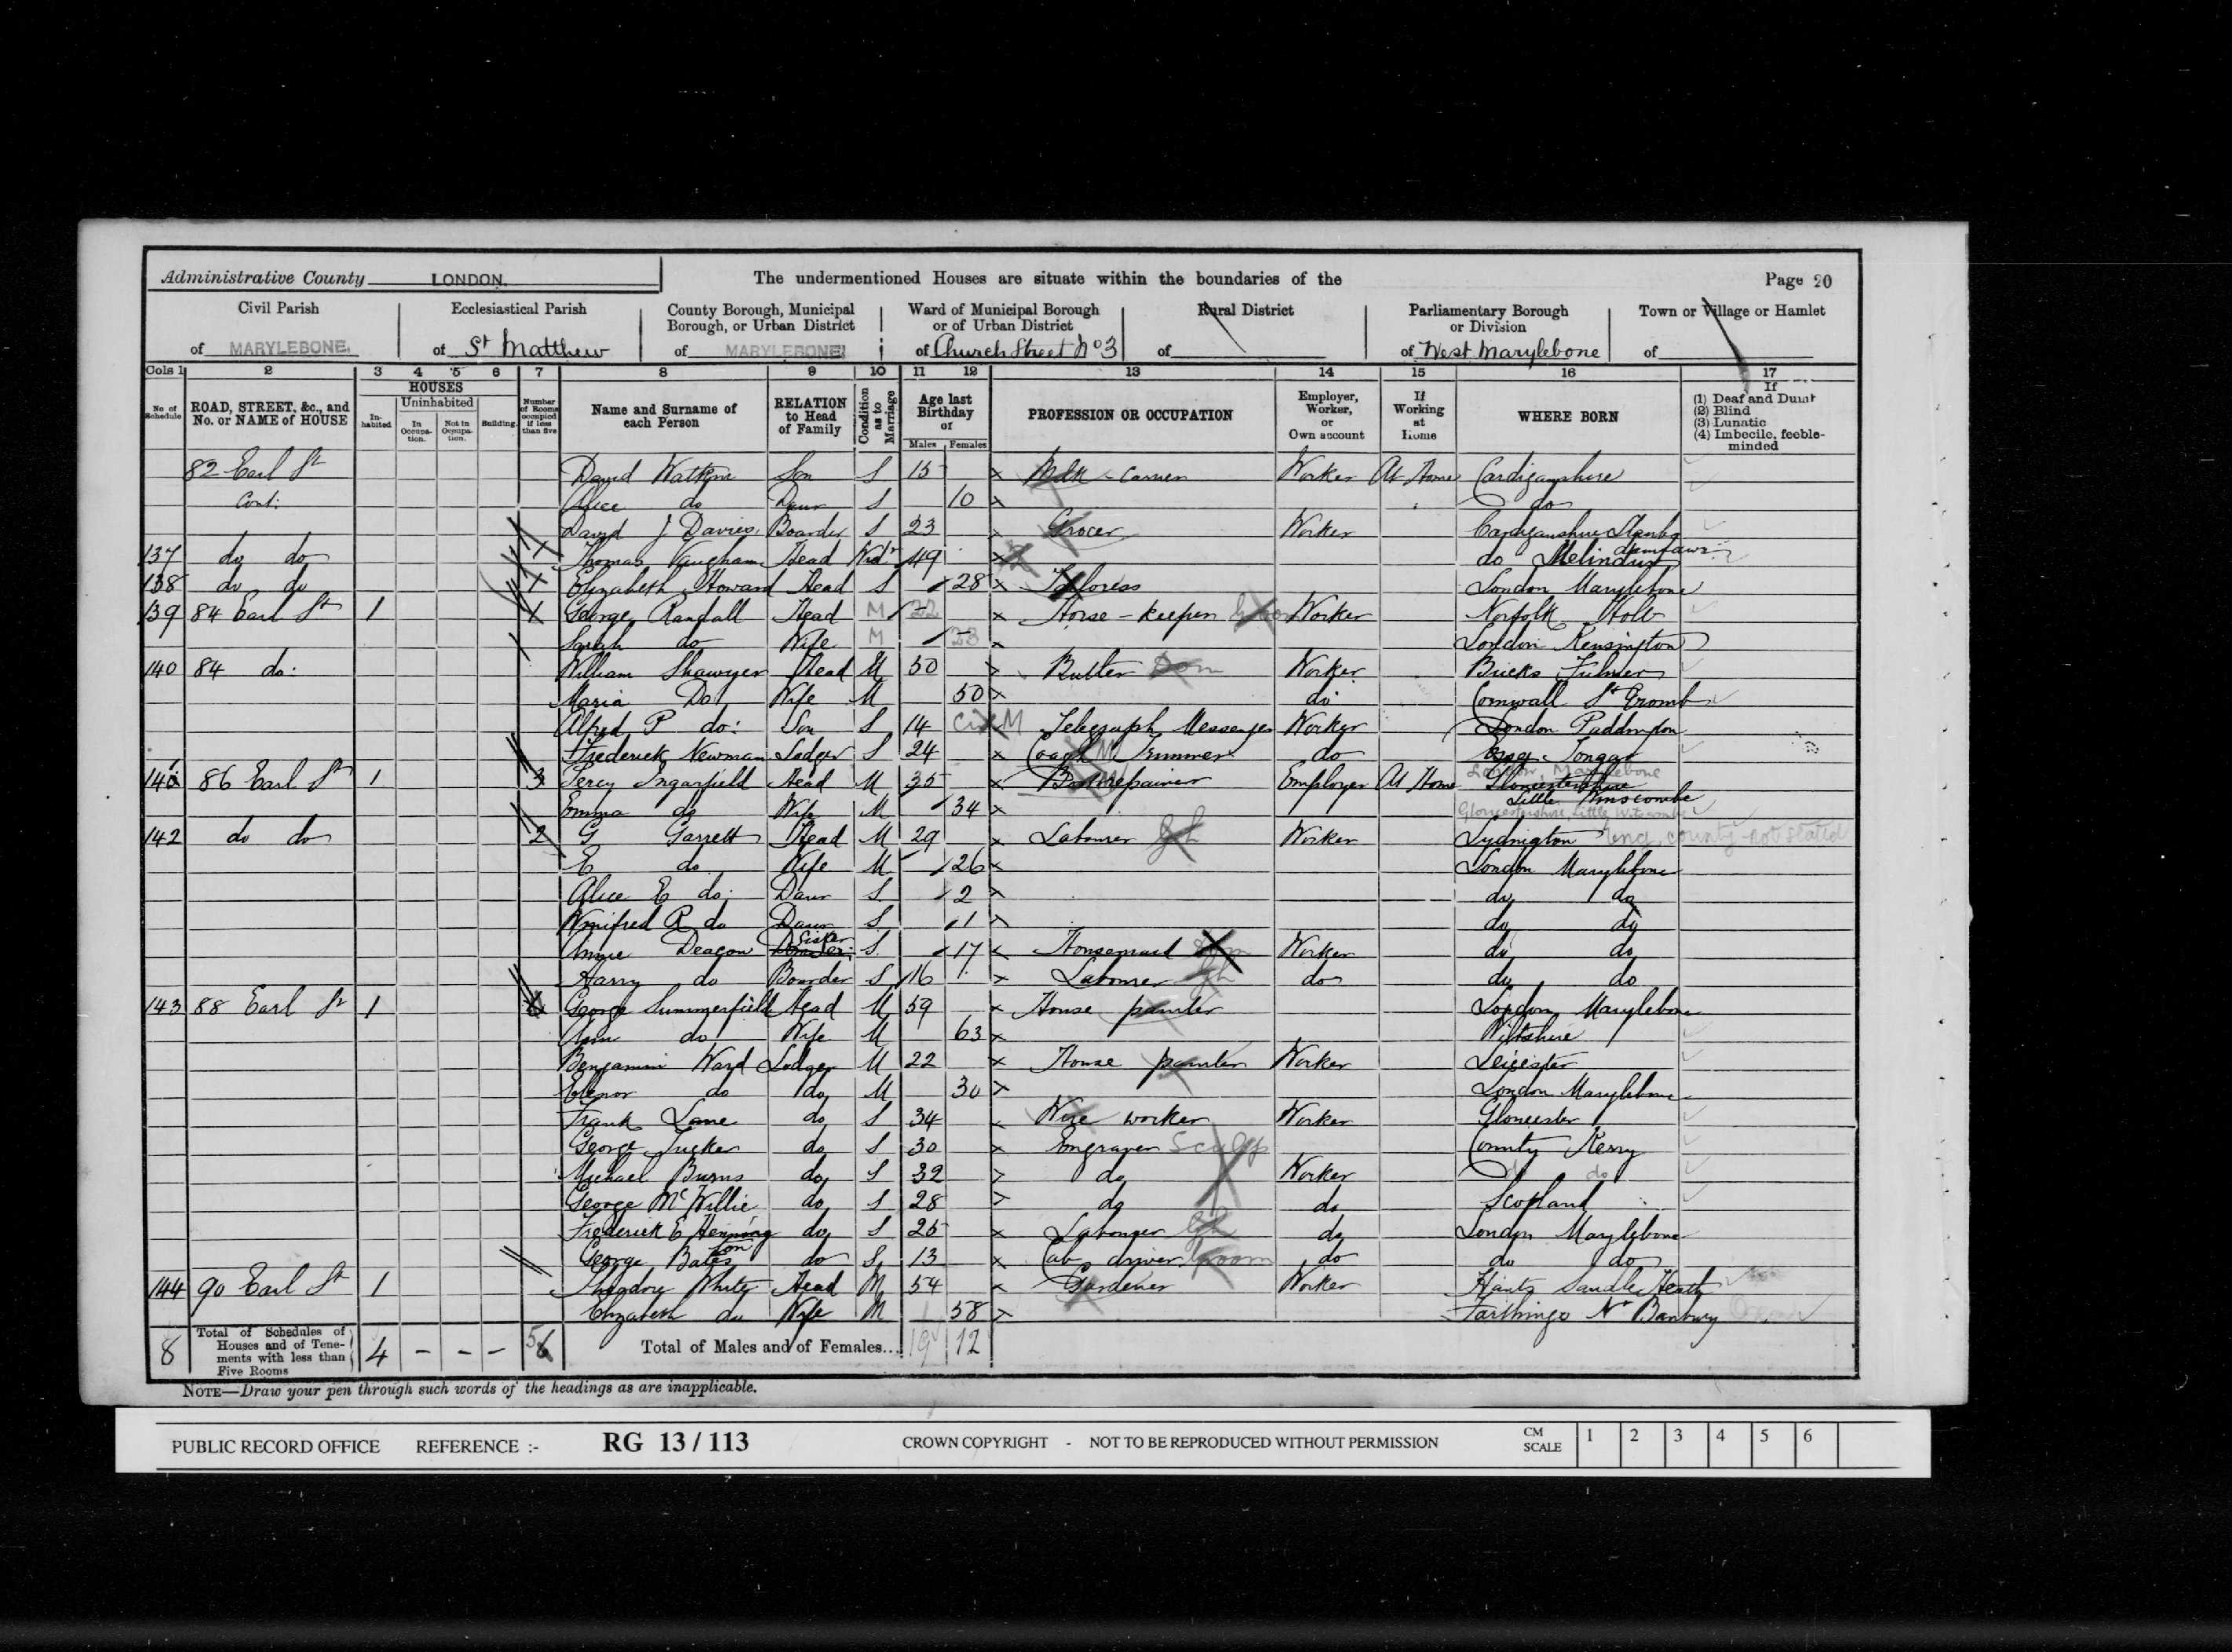 Administrative County LONDON. The undermentioned Houses are situate within the boundaries of the Page 20
Civil Parish Ecclesiastical Parish County Borough, Municipal Borough, or Urban District Ward of Municipal Borough or of Urban District Rural District Parliamentary Borough or Division Town or Village or Hamlet
of MARYLEBONE of St Matthew of MARYLEBONE of Church Street No 3 of of West Marylebone of
Cols 1 2 3 4 5 6 7 8 9 10 11 12 13 14 15 16 17
No of Schedule ROAD, STREET, &c., and No. or NAME of HOUSE HOUSES In-habited Uninhabited In Occupa-tion. Not in Occupa-tion. Building. Number of Rooms occupied if less than five Name and Surname of each Person RELATION to Head of Family Condition as to Marriage Age last Birthday of Males Females PROFESSION OR OCCUPATION Employer, Worker, or Own account If Working at Home WHERE BORN If (1) Deaf and Dumb (2) Blind (3) Lunatic (4) Imbecile, feeble-minded
82 Earl St David Watkin Son S 15 Milk Carrier Worker At Home Cardiganshire
Cont: Alice do Daur S 10 do
David J Davies Boarder S 23 Grocer Worker Cardiganshire
137 do do 1 Thomas Vaughan Head Widr 49 do Melindur
138 do do 1 Elizabeth Howard Head S 28 Tailoress London Marylebone
139 84 Earl St 1 1 George Randall Head M 32 Horse-keeper Worker Norfolk Holt
Sarah do Wife M London Kensington
140 84 do: William Shawyer Head M 50 Butler Dom Worker Bucks Fulmer
Maria Do Wife M 50 do Cornwall St
Alfred P do: Son S 14 Telegraph Messenger Worker London Paddington
Frederick Newman Lodger S 24 Coach Trimmer do Ongar
141 86 Earl St 1 3 Percy Ingarfield Head M 35 Bootrepairer Employer At Home London, Marylebone
Emma do Wife M 34 Gloucestershire, Little Witcombe
142 do do 2 G Garrett Head M 29 Labourer Worker Lydington Eng. county not stated
E do Wife M 26 London Marylebone
Alice E do: Daur S. 2 do do
Winifred R do Daur S. 1 do do
Annie Deacon Sister S. 17 Housemaid Worker do do
Harry do Boarder S 16 Labourer do do do
143 88 Earl St 1 George Summerfield Head M 59 House painter London Marylebone
Ann do Wife M 63 Wiltshire
Benjamin Ward Lodger M 22 House painter Worker Leicester
Elenor do do M 30 London Marylebone
Frank Lane do S 34 Wire worker Worker Gloucester
George Tucker do S 30 Engraver County Kerry
Michael Burns do S 32 do Worker do
George McWillie do S 28 do do Scotland
Frederick E do S 25 Labourer do London Marylebone
George do S 13 Cab driver Groom do do do
144 90 Earl St 1 Theodore White Head M 54 Gardener Worker Hants Sandle Heath
Elizabeth do Wife M 58 Farthingo Nr Banbury
8 Total of Schedules of Houses and of Tenements with less than Five Rooms 4 - - - Total of Males and of Females... 19 12
NOTE—Draw your pen through such words of the headings as are inapplicable.
PUBLIC RECORD OFFICE REFERENCE :- RG 13 / 113 CROWN COPYRIGHT - NOT TO BE REPRODUCED WITHOUT PERMISSION CM SCALE 1 2 3 4 5 6